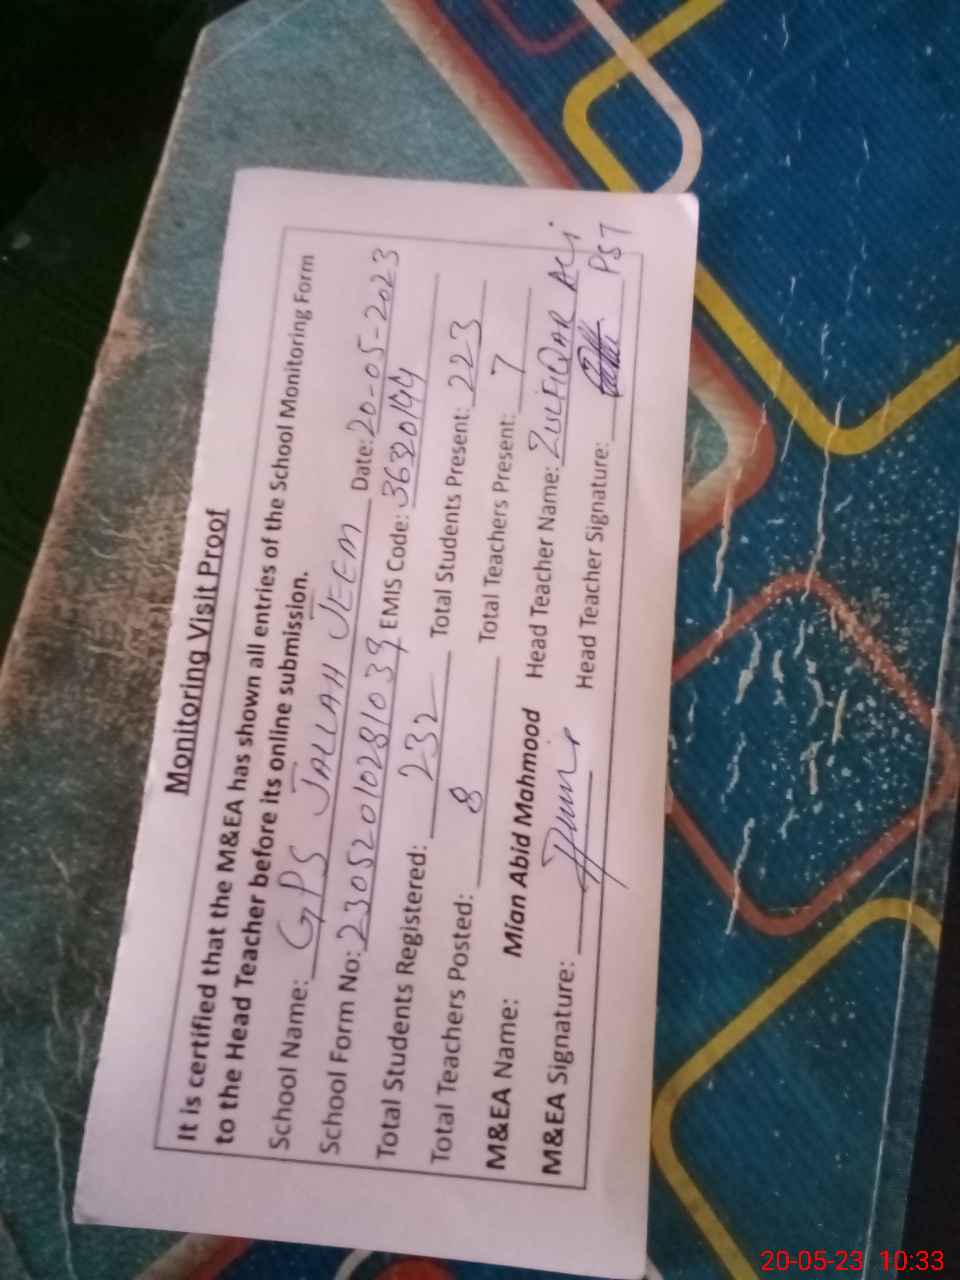 Monitoring Visit Proof
It is certified that the M&EA has shown all entries of the School Monitoring Form
to the Head Teacher before its online submission.
School Name: GPS JALLAH JEEM Date: 20-05-2023
School Form No: 23052010281039 EMIS Code: 36320144
Total Students Registered: 232 Total Students Present: 223
Total Teachers Posted: 8 Total Teachers Present: 7
M&EA Name: Mian Abid Mahmood Head Teacher Name: ZULFIQAR ALI
M&EA Signature: Head Teacher Signature: PST
20-05-23 10:33